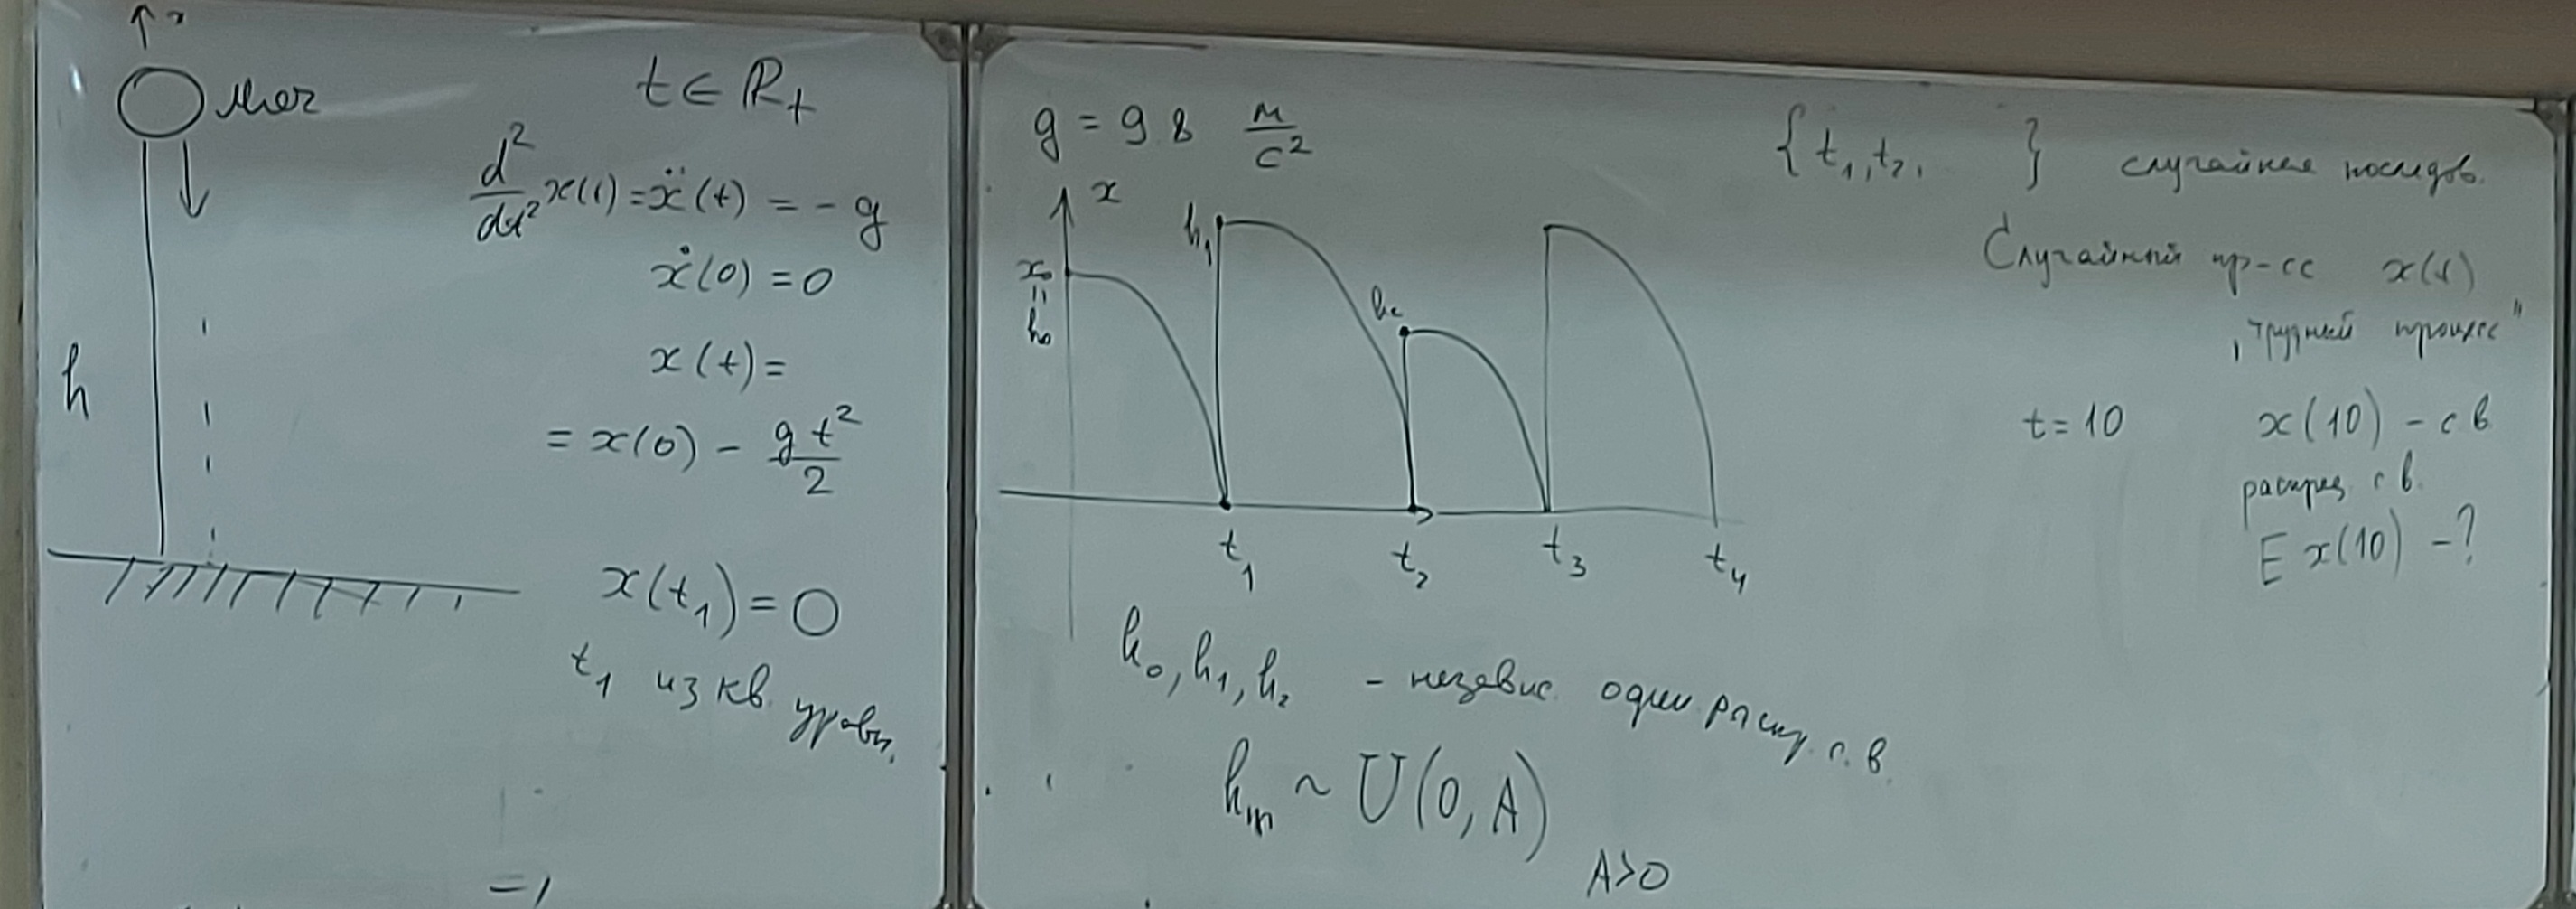 x
мяч
t ∈ ℝ₊
d²/dt² x(t) = ẍ(t) = - g
ẋ(0) = 0
x(t) =
= x(0) - gt²/2
h
x(t₁) = 0
t₁ из кв. уравн.
g = 9 8 м/с²
x
x₀
=
h₀
h₁
h₂
t₁ t₂ t₃ t₄
h₀, h₁, h₂ - независ. один распр. с. в.
hₘ ~ U(0, A)
A>0
{t₁, t₂, } случайная последов.
Случайный пр-сс x(t)
„трудный процесс"
t = 10 x(10) - с в
распред с в.
E x(10) - ?